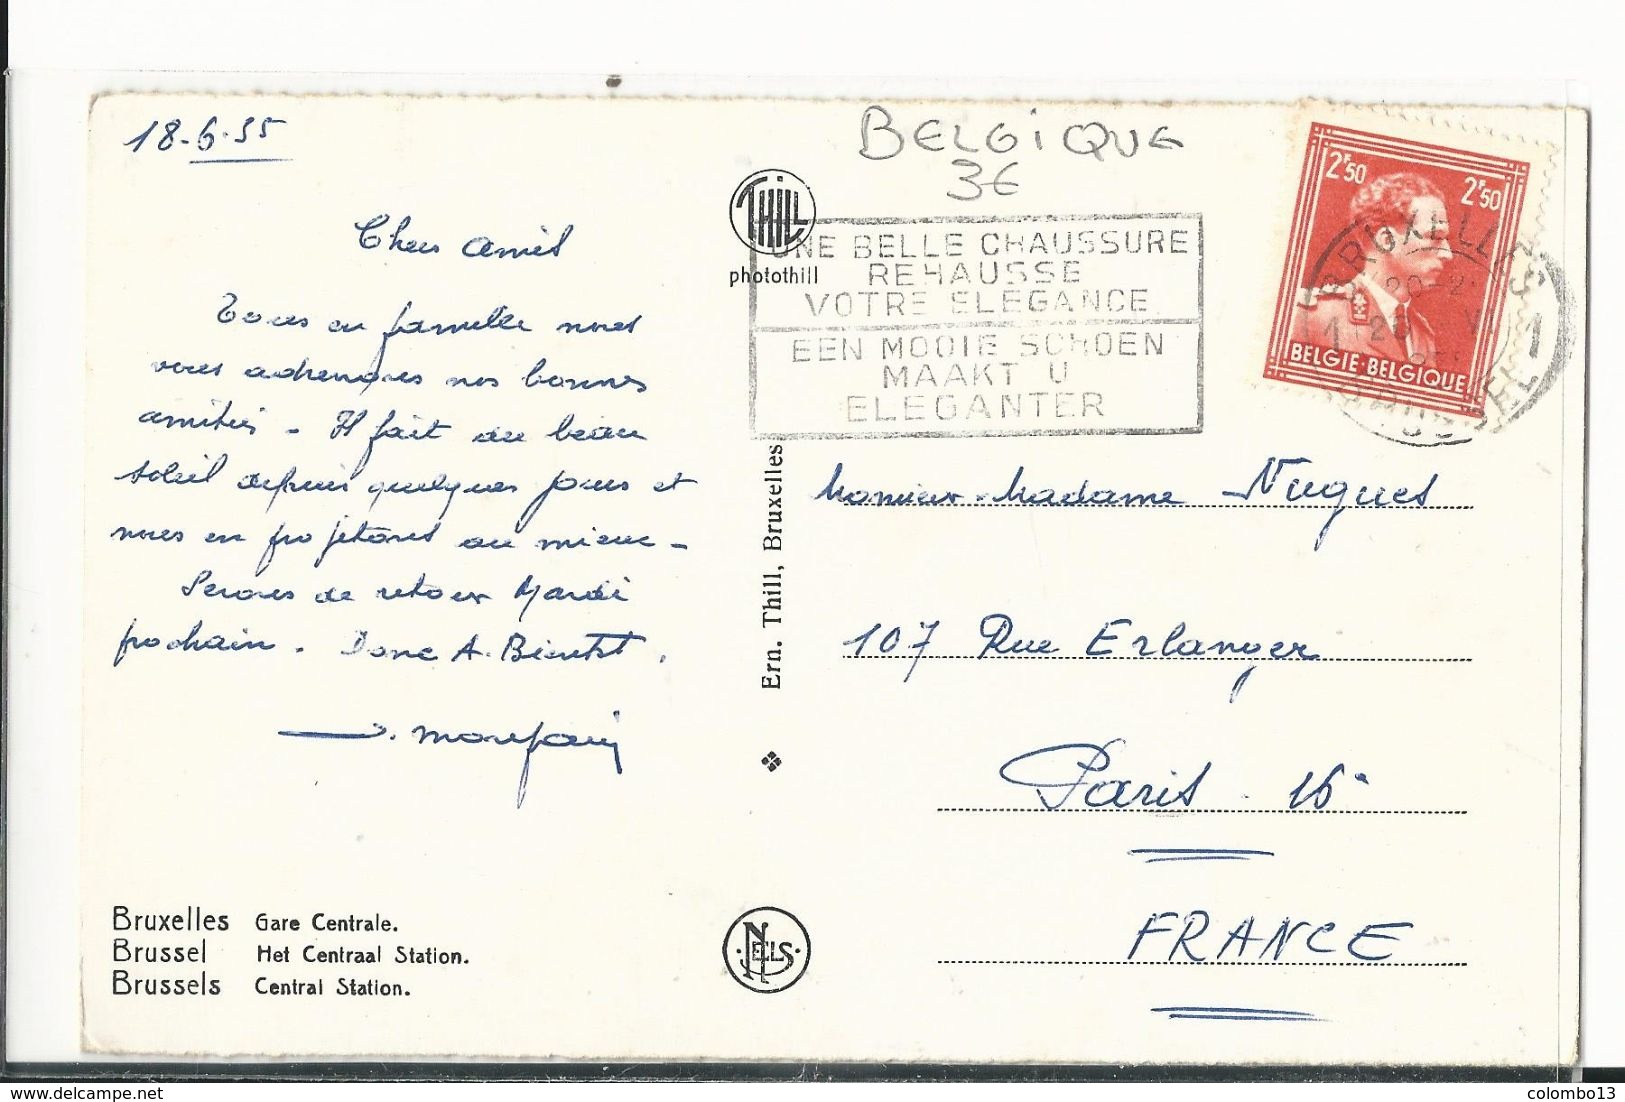 18-6-55
BELGIQUE
3€
THILL
photothill
UNE BELLE CHAUSSURE
REHAUSSE
VOTRE ELEGANCE
EEN MOOIE SCHOEN
MAAKT U
ELEGANTER
2F50 2F50
BELGIE-BELGIQUE
BRUXELLES
1 1
BRUSSEL
Chers amis
Tous en famille nous
vous adressons nos bonnes
amitiés - Il fait du beau
soleil depuis quelques jours et
nous en profitons au mieux -
Serons de retour Mardi
prochain. Donc A. Bientôt.
Ern. Thill, Bruxelles
Monsieur-Madame Nugues
107 Rue Erlanger
Paris - 16e
FRANCE
Bruxelles Gare Centrale.
Brussel Het Centraal Station.
Brussels Central Station.
NELS
© delcampe.net
colombo13